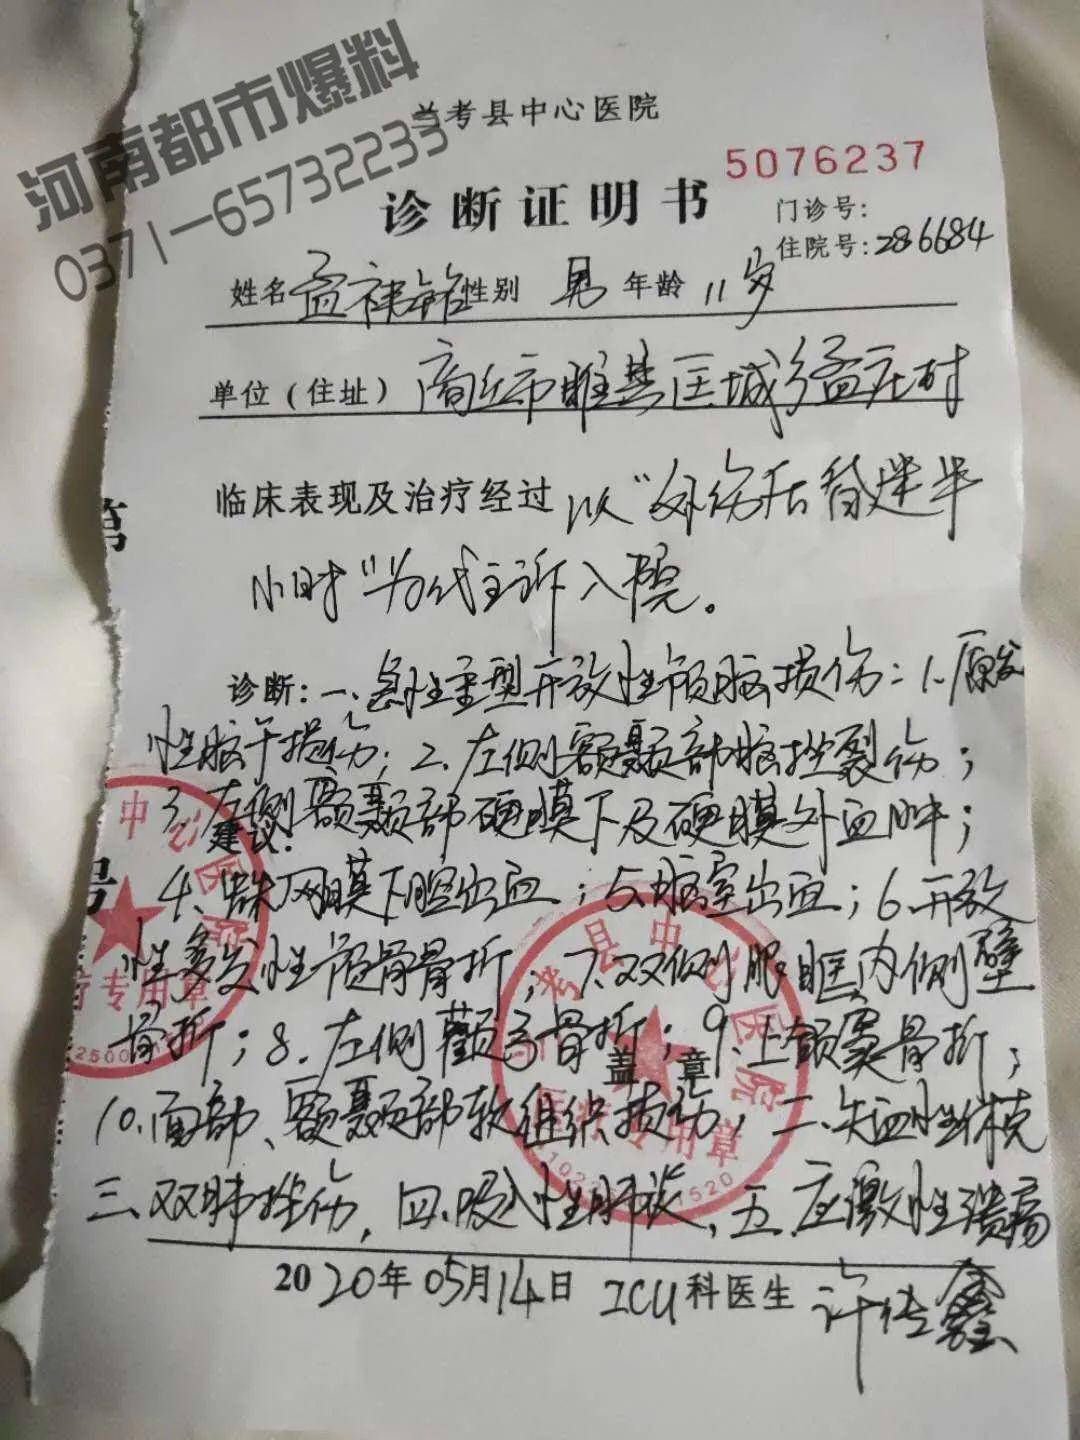 河南都市爆料
0371-65732233
兰考县中心医院
5076237
诊断证明书
门诊号:
住院号:286684
姓名 孟祎铭 性别 男 年龄 11岁
单位(住址) 商丘市睢县匡城乡孟庄村
临床表现及治疗经过 以“外伤后昏迷半
小时”为代主诉入院。
诊断:一、急性重型开放性颅脑损伤:1.原发
性脑干损伤;2.左侧额颞部脑挫裂伤;
3.左侧额颞部硬膜下及硬膜外血肿;
建议:
4.蛛网膜下腔出血;5.脑室出血;6.开放
性多发性颅骨骨折;7.双侧眼眶内侧壁
骨折;8.左侧颧弓骨折;9.上颌窦骨折;
盖章
10.面部、额颞部软组织损伤;二、失血性休克
三、双肺挫伤,四、吸入性肺炎,五、应激性溃疡
2020年05月14日 ICU科医生 许传鑫
第
号
中心医院
疗专用章
25000
考县中心医院
医疗专用章